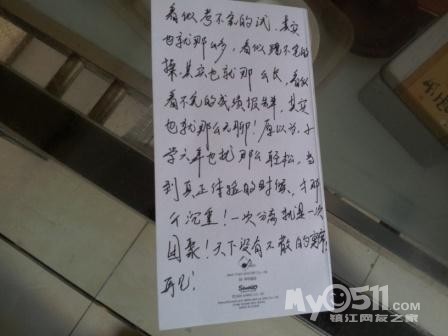 看似考不完的试,其实
也就那么多,看似理不完的
操其实也就那么长,看似
看不完的成绩报告单,其实
也就那么无聊!原以为,小
学六年也就那么轻松,当
到真正体验的时候,才那
么沉重!一次分离就是一次
团聚!天下没有不散的宴席,
再见!
SANRIO
My0511.com
镇江网友之家